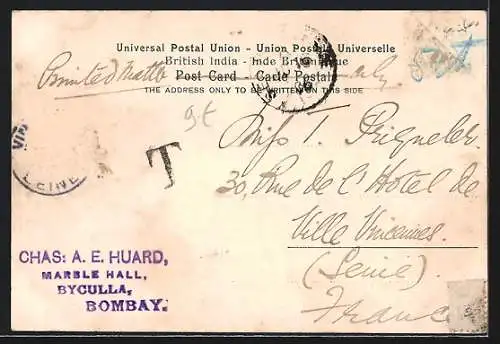 Universal Postal Union - Union Postale Universelle
British India - Inde Britannique
Post Card - Carte Postale
THE ADDRESS ONLY TO BE WRITTEN ON THIS SIDE
Printed Matter only
T
Miss I.
30, Rue de l'Hôtel de
Ville Vincennes.
(Seine)
France
CHAS: A. E. HUARD,
MARBLE HALL,
BYCULLA,
BOMBAY.
VIN
SEINE